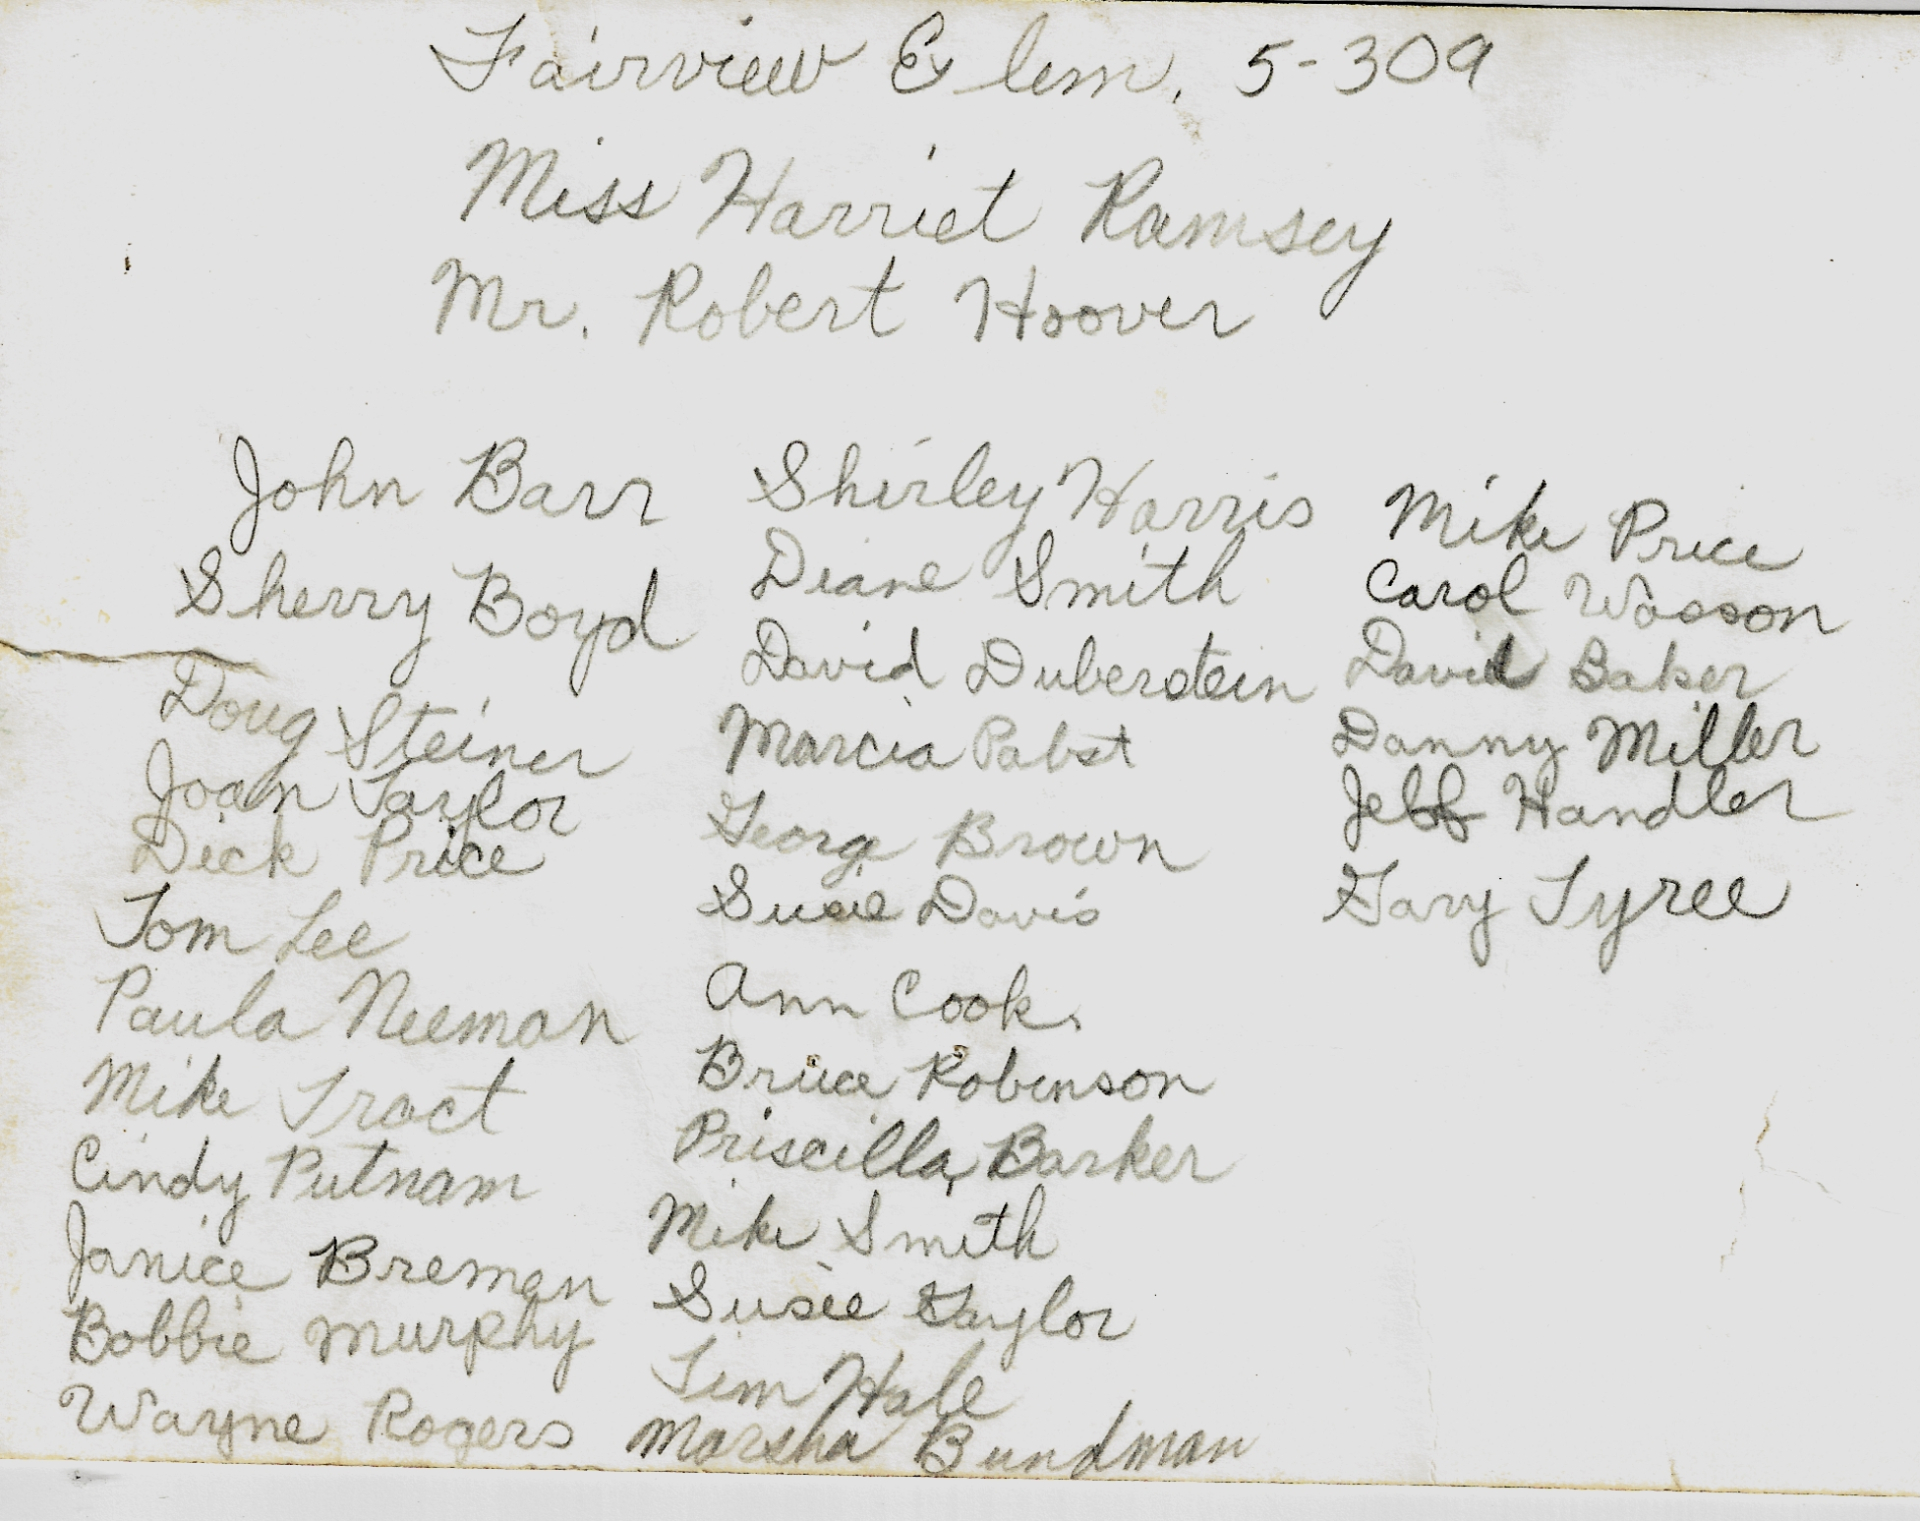 Fairview Elem. 5-309
Miss Harriet Ramsey
Mr. Robert Hoover
John Barr
Sherry Boyd
Doug Steiner
Joan Taylor
Dick Price
Tom Lee
Paula Neeman
Mike Tract
Cindy Putnam
Janice Breman
Bobbie Murphy
Wayne Rogers
Shirley Harris
Diane Smith
David Duberstein
Marcia Pabst
George Brown
Susie Davis
Ann Cook
Bruce Robinson
Priscilla Barker
Mike Smith
Susie Taylor
Tim Hale
Marsha Bundman
Mike Price
Carol Wasson
David Baker
Danny Miller
Jeff Handler
Gary Tyree